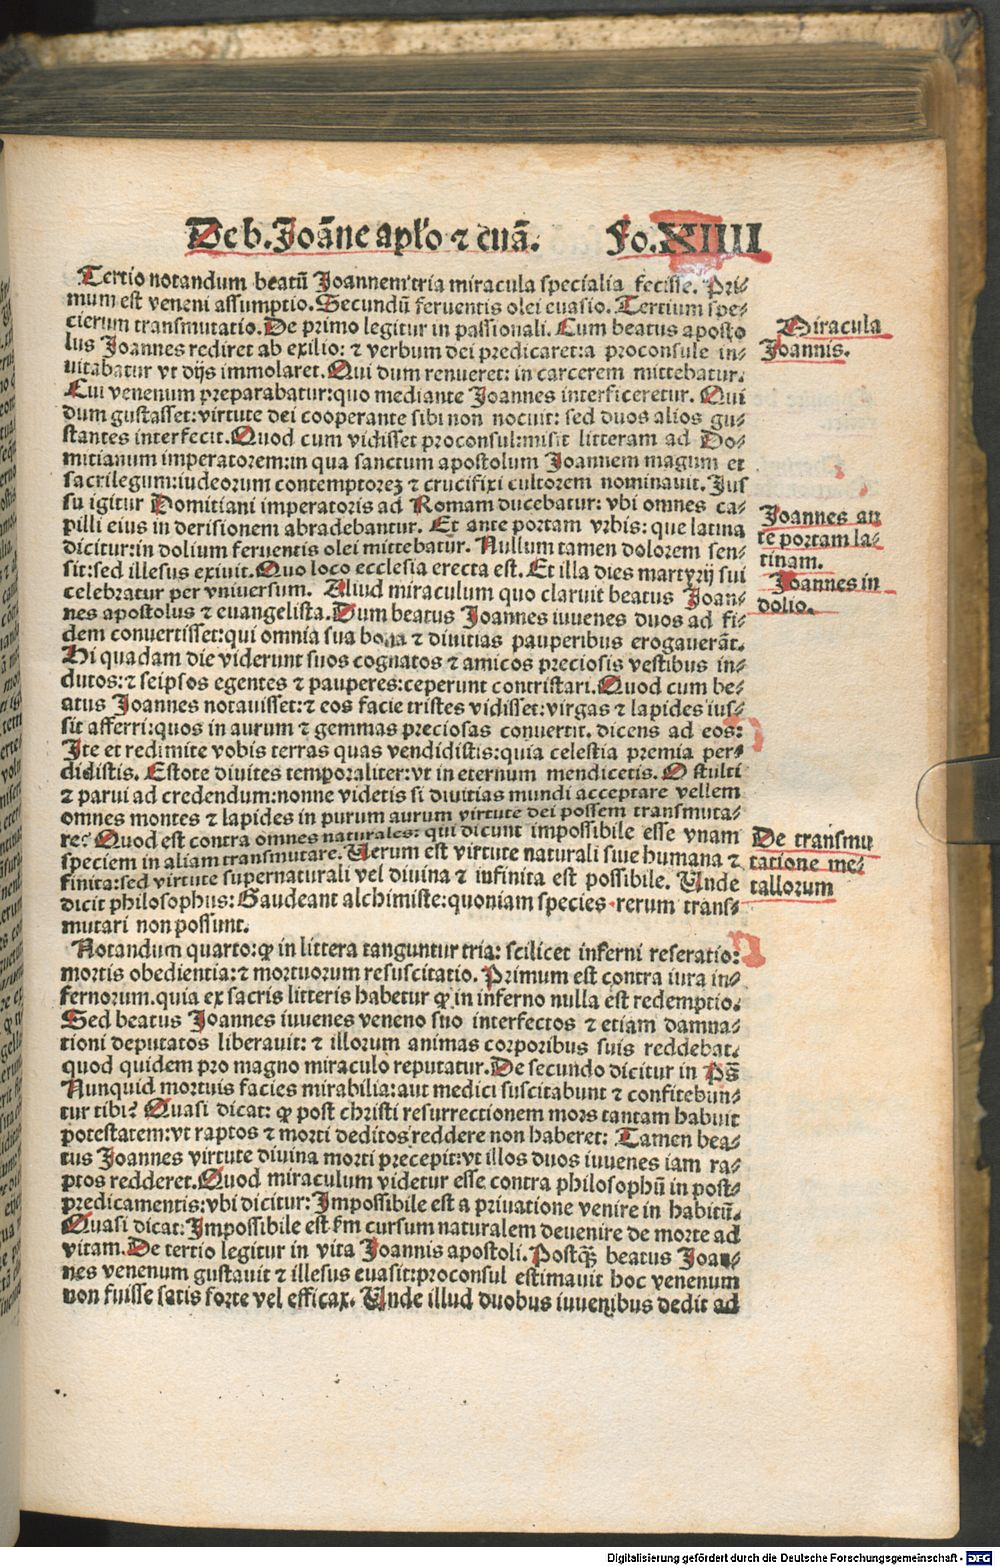 De b. Joāne apl'o ⁊ euā. Fo. XIIII
Tertio notandum beatū Joannem tria miracula specialia fecisse. Pri⸗
mum est veneni assumptio. Secundū feruentis olei euasio. Tertium spe⸗
cierum transmutatio. De primo legitur in passionali. Cum beatus aposto
lus Joannes rediret ab exilio: ⁊ verbum dei predicaret: a proconsule in⸗
uitabatur vt dijs immolaret. Qui dum renueret: in carcerem mittebatur.
Cui venenum preparabatur: quo mediante Joannes interficeretur. Qui
dum gustasset: virtute dei cooperante sibi non nocuit: sed duos alios gu⸗
stantes interfecit. Quod cum vidisset proconsul: misit litteram ad Do⸗
mitianum imperatorem: in qua sanctum apostolum Joannem magum et
sacrilegum: iudeorum contemptoreꝫ ⁊ crucifixi cultorem nominauit. Jus
su igitur Domitiani imperatoris ad Romam ducebatur: vbi omnes ca⸗
pilli eius in derisionem abradebantur. Et ante portam vrbis: que latina
dicitur: in dolium feruentis olei mittebatur. Nullum tamen dolorem sen⸗
sit: sed illesus exiuit. Quo loco ecclesia erecta est. Et illa dies martyrij sui
celebratur per vniuersum. Aliud miraculum quo claruit beatus Joan⸗
nes apostolus ⁊ euangelista. Dum beatus Joannes iuuenes duos ad fi⸗
dem conuertisset: qui omnia sua bona ⁊ diuitias pauperibus erogauerāt.
Hi quadam die viderunt suos cognatos ⁊ amicos preciosis vestibus in⸗
dutos: ⁊ seipsos egentes ⁊ pauperes: ceperunt contristari. Quod cum be⸗
atus Joannes notauisset: ⁊ eos facie tristes vidisset: virgas ⁊ lapides ius⸗
sit afferri: quos in aurum ⁊ gemmas preciosas conuertit. dicens ad eos:
Ite et redimite vobis terras quas vendidistis: quia celestia premia per⸗
didistis. Estote diuites temporaliter: vt in eternum mendicetis. O stulti
⁊ parui ad credendum: nonne videtis si diuitias mundi acceptare vellem
omnes montes ⁊ lapides in purum aurum virtute dei possem transmuta⸗
re? Quod est contra omnes naturales: qui dicunt impossibile esse vnam
speciem in aliam transmutare. Uerum est virtute naturali siue humana ⁊
finita: sed virtute supernaturali vel diuina ⁊ infinita est possibile. Unde
dicit philosophus: Gaudeant alchimiste: quoniam species rerum trans⸗
mutari non possunt.
Notandum quarto: ꝙ in littera tanguntur tria: scilicet inferni reseratio:
mortis obedientia: ⁊ mortuorum resuscitatio. Primum est contra iura in⸗
fernorum. quia ex sacris litteris habetur ꝙ in inferno nulla est redemptio.
Sed beatus Joannes iuuenes veneno suo interfectos ⁊ etiam damna⸗
tioni deputatos liberauit: ⁊ illorum animas corporibus suis reddebat.
quod quidem pro magno miraculo reputatur. De secundo dicitur in Ps̄
Nunquid mortuis facies mirabilia: aut medici suscitabunt ⁊ confitebun⸗
tur tibi? Quasi dicat: ꝙ post christi resurrectionem mors tantam habuit
potestatem: vt raptos ⁊ morti deditos reddere non haberet: Tamen bea⸗
tus Joannes virtute diuina morti precepit: vt illos duos iuuenes iam ra⸗
ptos redderet. Quod miraculum videtur esse contra philosophū in post⸗
predicamentis: vbi dicitur: Impossibile est a priuatione venire in habitū.
Quasi dicat: Impossibile est s̄m cursum naturalem deuenire de morte ad
vitam. De tertio legitur in vita Joannis apostoli. Postꝙ̄ beatus Joan⸗
nes venenum gustauit ⁊ illesus euasit: proconsul estimauit hoc venenum
non fuisse satis forte vel efficax. Unde illud duobus iuuenibus dedit ad
Miracula
Joannis.
Joannes an
te portam la⸗
tinam.
Joannes in
dolio.
De transmu
tatione me⸗
tallorum
Digitalisierung gefördert durch die Deutsche Forschungsgemeinschaft - DFG